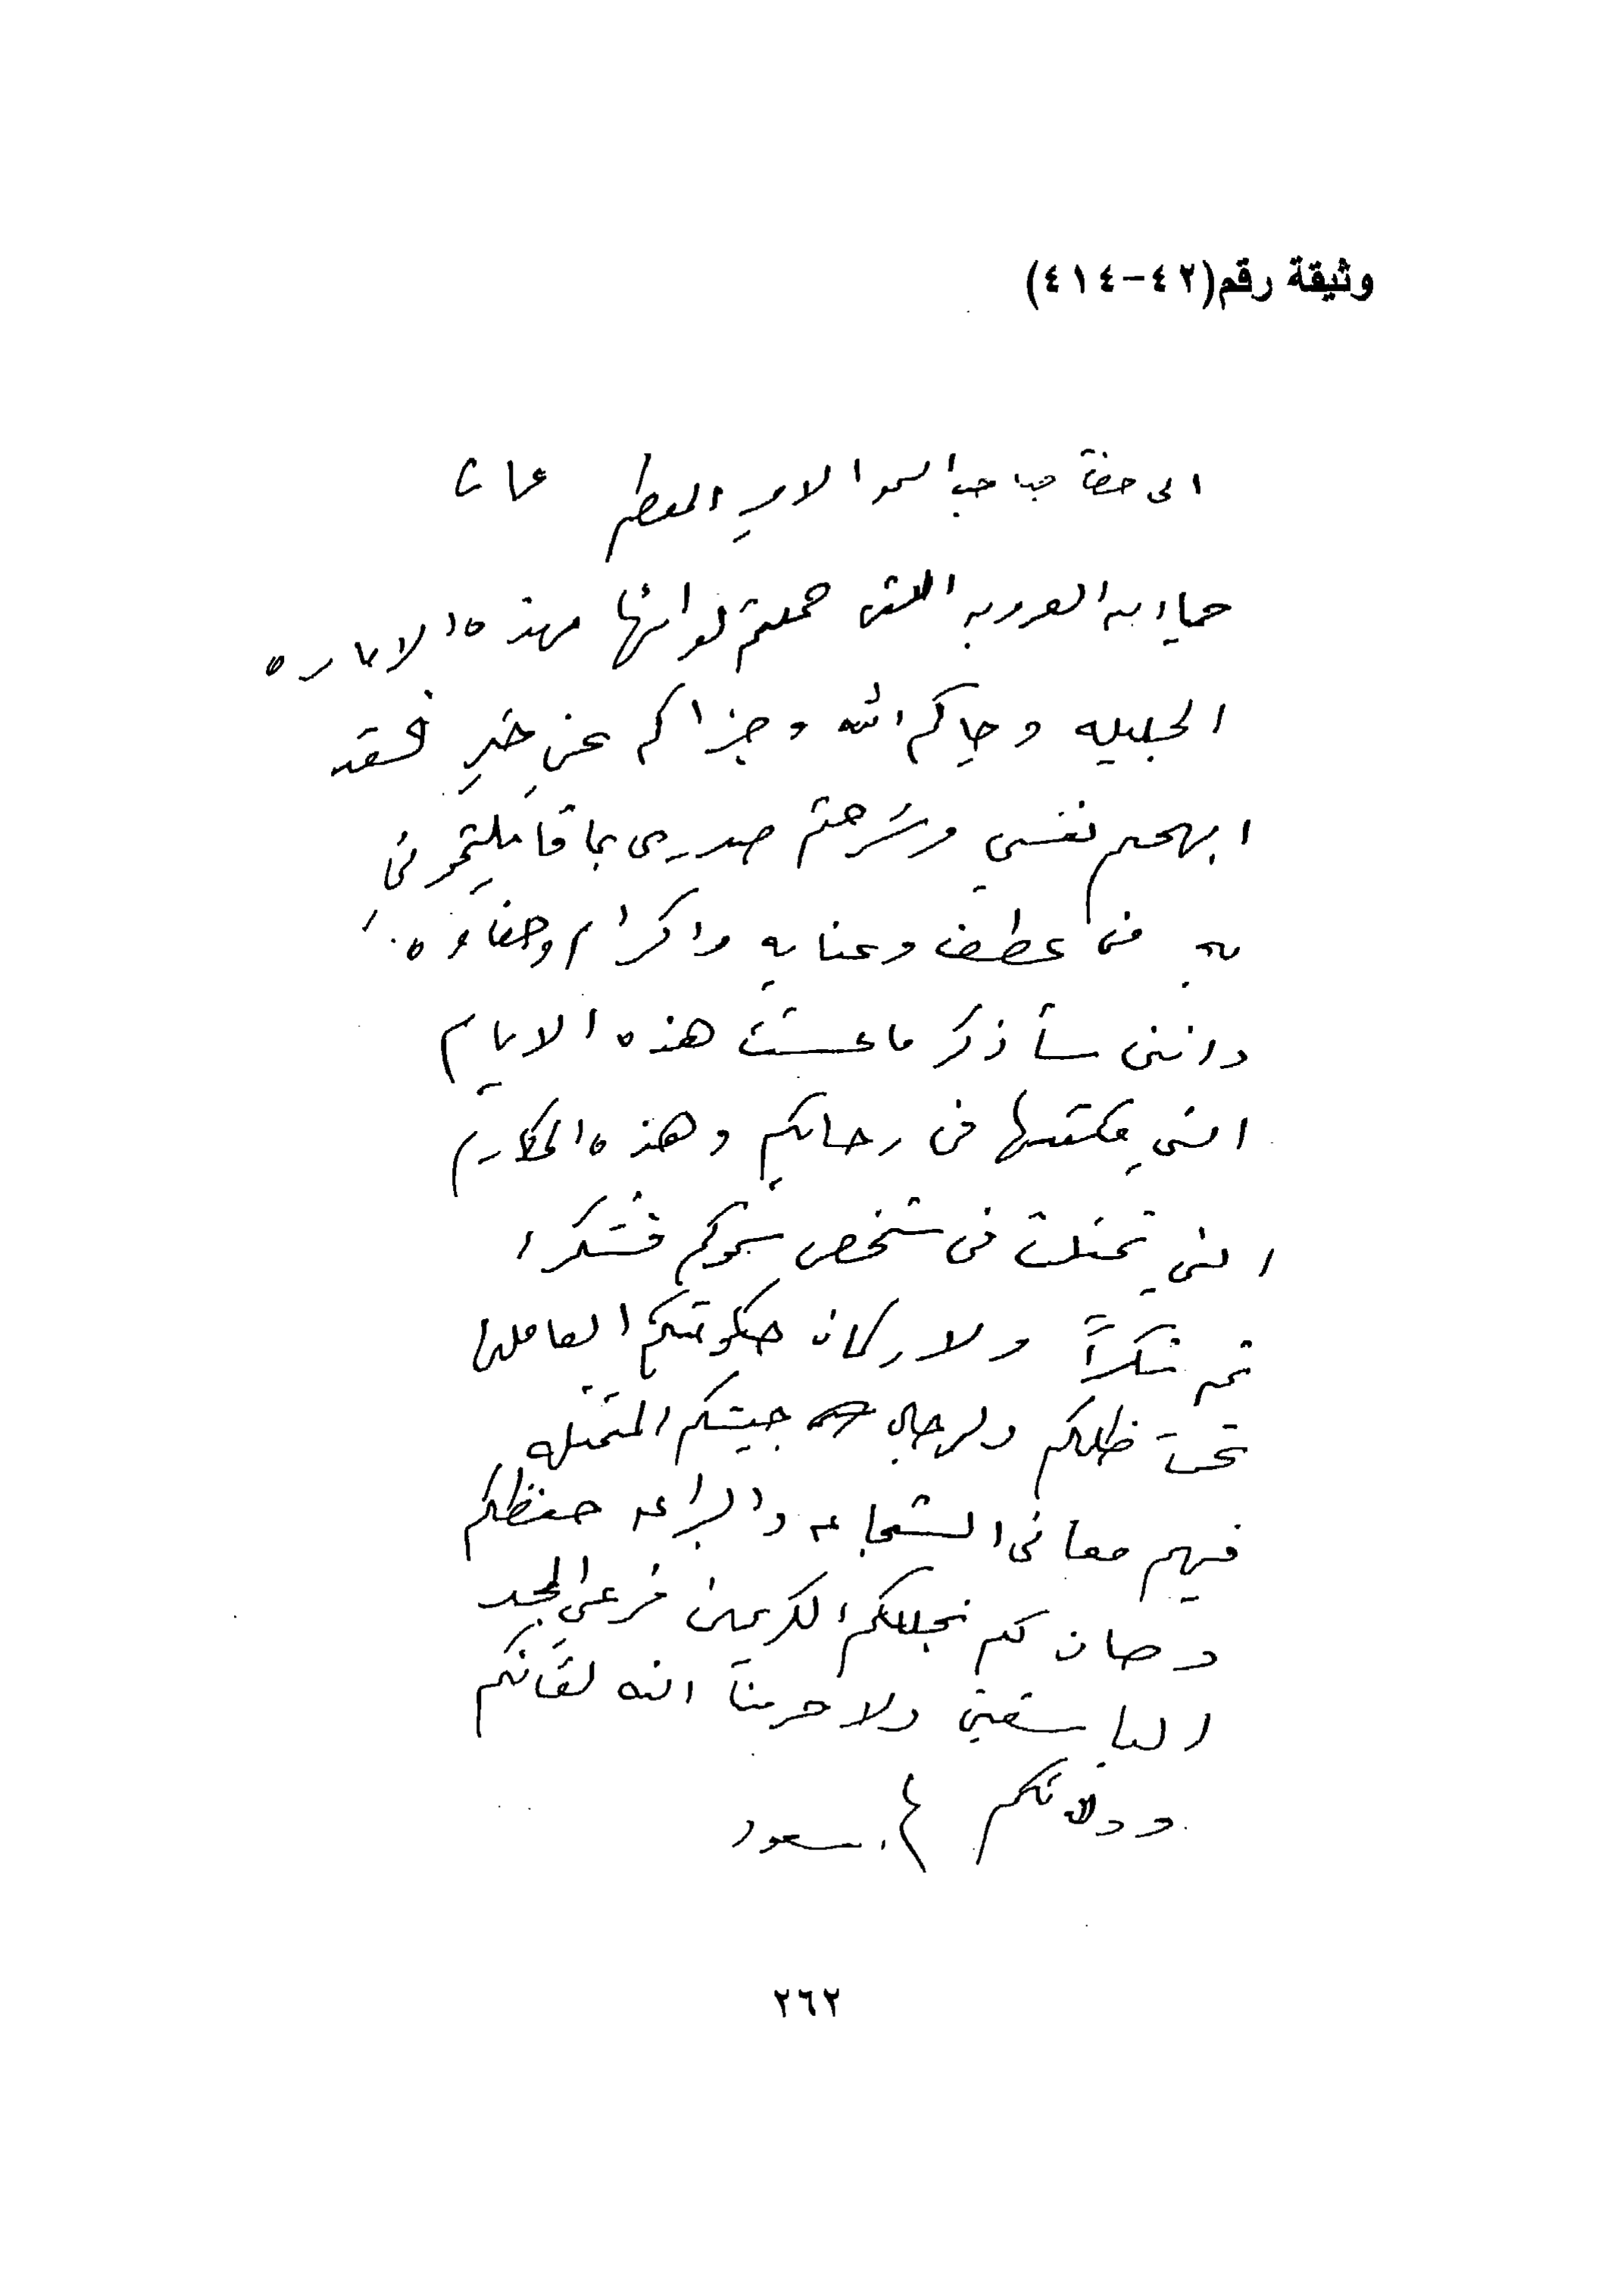 وثيقة رقم(٤٢-٤١٤)
الى حضرة صاحب السمو الامير المعظم
العروبه التى حملتم لوائها بهذه الاماره
الجليله وحياكم الله وجزاكم عنى خير فلقد
ابهجتم نفسي وشرحتم صدرى بما قابلتمونى
به من عطف وعنايه واكرام وحفاوه
واننى سأذكر ما عشت هذه الايام
التي مكثتها فى رحابكم وهذه المكارم
التي تمثلت فى شخص سموكم فشكرا
ثم شكراً ولاركان حكومتكم العاملين
تحت ظلكم ولرجال جيشكم المتمثله
فيهم معانى الشجاعه والبراعه حفظكم
وصان لكم نجليكم الكريمين فرعى المجد
الباسقين ولا حرمنا الله لقائكم
وولائكم سعود
٢٦٢